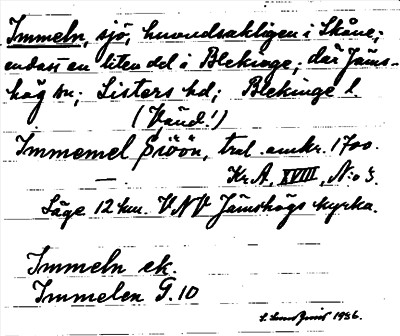 Immeln, sjö, huvudsakligen i Skåne;
endast en liten del i Blekinge; där Jäms-
hög sn; Listers hd; Blekinge l.
(Vänd!)
Immemel Siöön, tral. omkr. 1700.
Kr.A. XVIII, N:o 3.
Läge 12 km. VNV Jämshögs kyrka.
Immeln ek.
Immelen G. 10
1936.